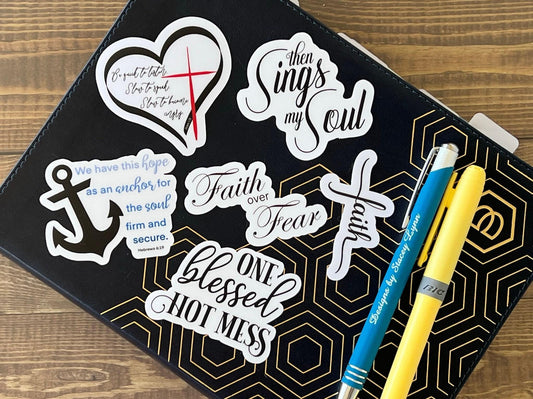 Be quick to listen
Slow to speak
Slow to become
angry
then
Sings
my
Soul
We have this hope
as an anchor for
the soul
firm and
secure.
Hebrews 6:19
Faith
over
Fear
faith
ONE
blessed
HOT MESS
Designs by Stacey Lynn
BIC